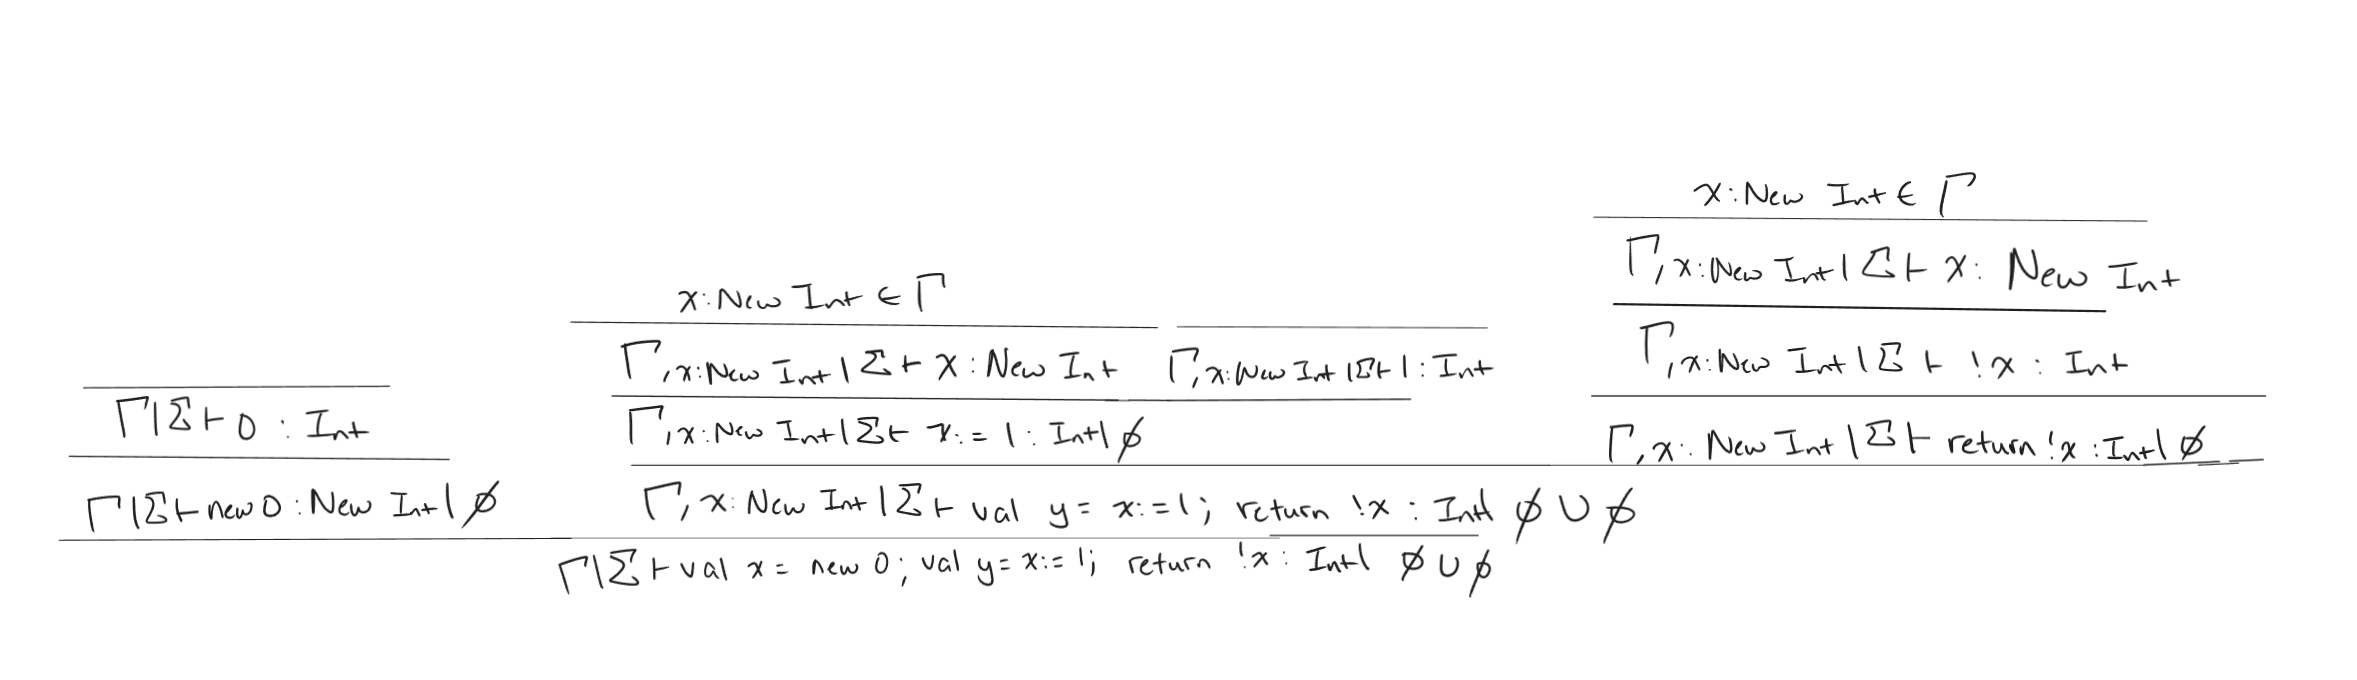 x:New Int ∈ Γ
Γ,x:New Int|Σ⊢ x: New Int
x:New Int ∈ Γ
Γ,x:New Int|Σ⊢ x:New Int
Γ,x:New Int|Σ⊢1:Int
Γ,x:New Int|Σ⊢ !x : Int
Γ|Σ⊢0 : Int
Γ,x:New Int|Σ⊢ x:=1: Int|∅
Γ,x: New Int|Σ⊢ return !x :Int|∅
Γ|Σ⊢new 0:New Int|∅
Γ,x:New Int|Σ⊢ val y= x:=1; return !x : Int| ∅∪∅
Γ|Σ⊢val x = new 0; val y= x:= 1; return !x: Int| ∅∪∅